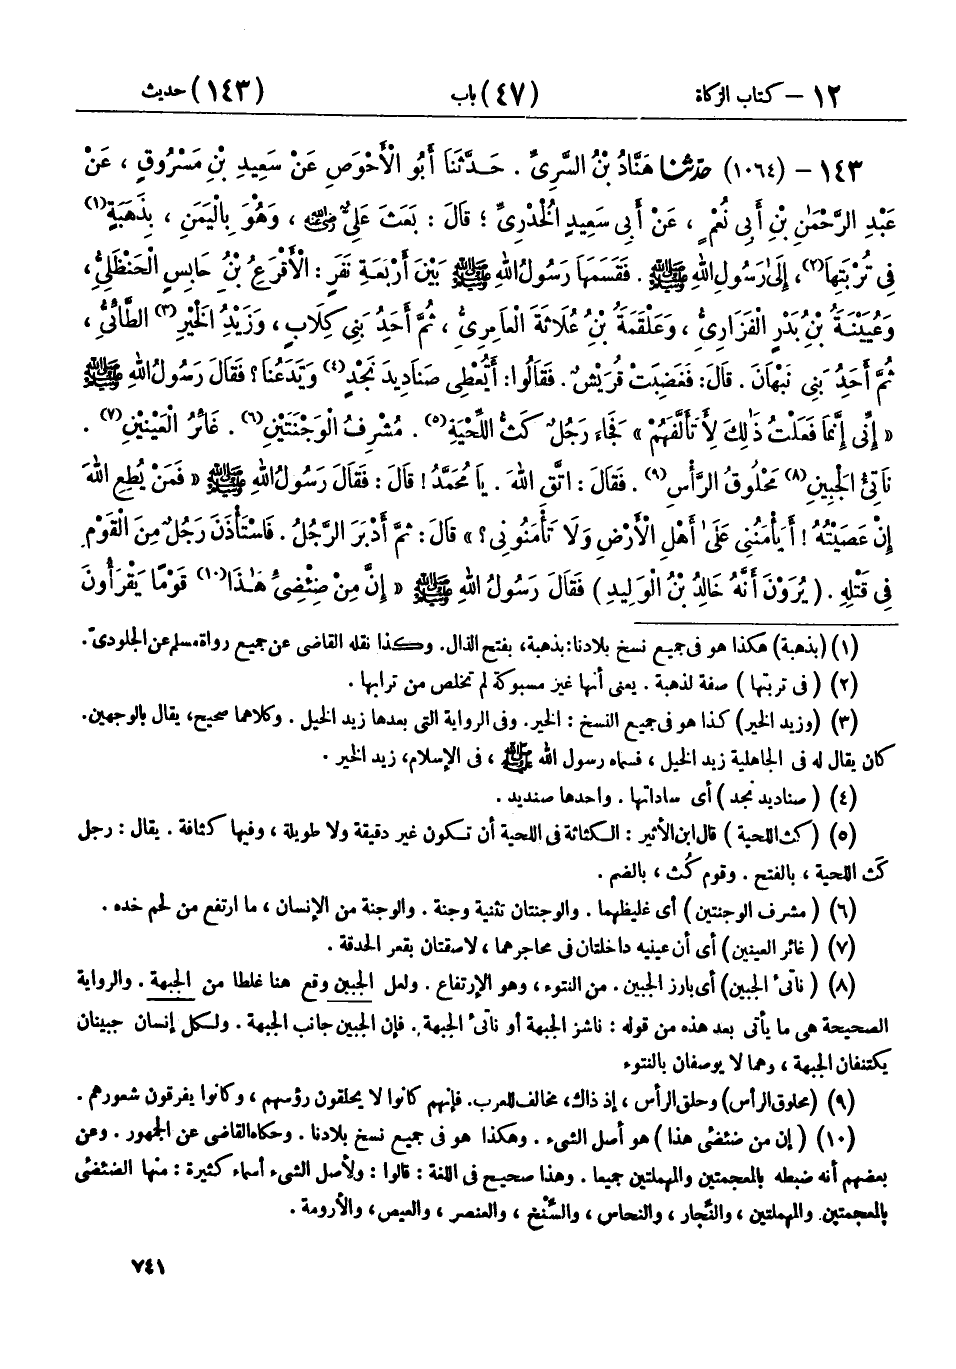 ١٢ – كتاب الزكاة (٤٧) باب (١٤٣) حديث
١٤٣ – (١٠٦٤) حدّثنا هَنَّادُ بْنُ السَّرِىِّ . حَدَّثَنَا أَبُو الْأَحْوَصِ عَنْ سَعِيدِ بْنِ مَسْرُوقٍ ، عَنْ
عَبْدِ الرَّحْمٰنِ بْنِ أَبِى نُعْمٍ ، عَنْ أَبِى سَعِيدٍ الْخُدْرِىِّ ؛ قَالَ : بَعَثَ عَلِىٌّ رضي الله عنه ، وَهُوَ بِالْيَمَنِ ، بِذَهَبَةٍ(١)
فِى تُرْبَتِهَا(٢)، إِلَىٰ رَسُولِ اللهِ ﷺ . فَقَسَمَهَا رَسُولُ اللهِ ﷺ بَيْنَ أَرْبَعَةِ نَفَرٍ : الْأَقْرَعُ بْنُ حَابِسٍ الْحَنْظَلِىُّ ،
وَعُيَيْنَةُ بْنُ بَدْرٍ الْفَزَارِىُّ ، وَعَلْقَمَةُ بْنُ عُلَاثَةَ الْعَامِرِىُّ ، ثُمَّ أَحَدُ بَنِى كِلَابٍ ، وَزَيْدُ الْخَيْرِ(٣) الطَّائِىُّ ،
ثُمَّ أَحَدُ بَنِى نَبْهَانَ . قَالَ : فَغَضِبَتْ قُرَيْشٌ . فَقَالُوا : أَيُعْطِى صَنَادِيدَ نَجْدٍ(٤) وَيَدَعُنَا ؟ فَقَالَ رَسُولُ اللهِ ﷺ
« إِنِّى إِنَّمَا فَعَلْتُ ذَٰلِكَ لِأَتَأَلَّفَهُمْ » فَجَاءَ رَجُلٌ كَثُّ اللِّحْيَةِ(٥) . مُشْرِفُ الْوَجْنَتَيْنِ(٦) . غَائِرُ الْعَيْنَيْنِ(٧) .
نَاتِئُ الْجَبِينِ(٨) مَحْلُوقُ الرَّأْسِ(٩) . فَقَالَ : اتَّقِ اللهَ . يَا مُحَمَّدُ ! قَالَ : فَقَالَ رَسُولُ اللهِ ﷺ « فَمَنْ يُطِعِ اللهَ
إِنْ عَصَيْتُهُ ! أَيَأْمَنُنِى عَلَىٰ أَهْلِ الْأَرْضِ وَلَا تَأْمَنُونِى ؟ » قَالَ : ثُمَّ أَدْبَرَ الرَّجُلُ . فَاسْتَأْذَنَ رَجُلٌ مِنَ الْقَوْمِ
فِى قَتْلِهِ . ( يُرَوْنَ أَنَّهُ خَالِدُ بْنُ الْوَلِيدِ ) فَقَالَ رَسُولُ اللهِ ﷺ « إِنَّ مِنْ ضِئْضِئِ هَٰذَا(١٠) قَوْمًا يَقْرَأُونَ
(١) (بذهبة) هكذا هو فى جميع نسخ بلادنا: بذهبة، بفتح الذال. وكذا نقله القاضى عن جميع رواة مسلم عن الجلودىّ.
(٢) ( فى تربتها ) صفة لذهبة . يعنى أنها غير مسبوكة لم تخلص من ترابها .
(٣) (وزيد الخير) كذا هو فى جميع النسخ : الخير. وفى الرواية التى بعدها زيد الخيل . وكلاهما صحيح، يقال بالوجهين.
كان يقال له فى الجاهلية زيد الخيل ، فسماه رسول الله ﷺ ، فى الإسلام، زيد الخير .
(٤) ( صناديد نجد ) أى ساداتها . واحدها صنديد .
(٥) ( كث اللحية ) قال ابن الأثير : الكثاثة فى اللحية أن تكون غير دقيقة ولا طويلة ، وفيها كثافة . يقال : رجل
كَث اللحية ، بالفتح . وقوم كُث ، بالضم .
(٦) ( مشرف الوجنتين ) أى غليظهما . والوجنتان تثنية وجنة . والوجنة من الإنسان ، ما ارتفع من لحم خده .
(٧) ( غائر العينين ) أى أن عينيه داخلتان فى محاجرهما ، لاصقتان بقعر الحدقة .
(٨) ( ناتئ الجبين ) أى بارز الجبين . من النتوء، وهو الإرتفاع . ولعل الجبين وقع هنا غلطا من الجبهة . والرواية
الصحيحة هى ما يأتى بعد هذه من قوله : ناشز الجبهة أو ناتئ الجبهة . فإن الجبين جانب الجبهة . ولكل إنسان جبينان
يكتنفان الجبهة ، وهما لا يوصفان بالنتوء
(٩) (محلوق الرأس) وحلق الرأس ، إذ ذاك، مخالف للعرب. فإنهم كانوا لا يحلقون رؤسهم ، وكانوا يفرقون شعورهم .
(١٠) ( إن من ضئضئ هذا ) هو أصل الشىء . وهكذا هو فى جميع نسخ بلادنا . وحكاه القاضى عن الجمهور . وعن
بعضهم أنه ضبطه بالمعجمتين والمهملتين جميعا . وهذا صحيح فى اللغة : قالوا : ولأصل الشىء أسماء كثيرة : منها الضئضئ
بالمعجمتين والمهملتين ، والنِّجار ، والنحاس ، والسِّنْخ ، والعنصر ، والعيص، والأرومة .
٧٤١